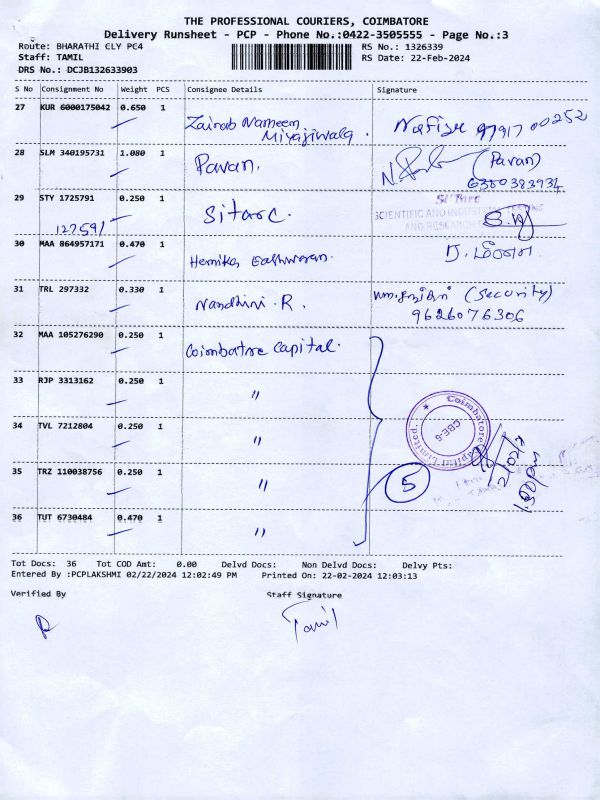 THE PROFESSIONAL COURIERS, COIMBATORE
Delivery Runsheet - PCP - Phone No.:0422-3505555 - Page No.:3
Route: BHARATHI CLY PC4
RS No.: 1326339
Staff: TAMIL
RS Date: 22-Feb-2024
DRS No.: DCJB132633903
S No Consignment No Weight PCS Consignee Details Signature
27 KUR 6000175042 0.650 1 Zainab Nameem
Miyajiwala. Nafise 97917 00252
28 SLM 340195731 1.080 1 Pavan. (Pavan)
6380383934
29 STY 1725791 0.250 1 Sitarc. Si'Tarc
SCIENTIFIC AND INDUSTRIAL TESTING
AND RESEARCH
127591
30 MAA 864957171 0.470 1 Hemika Eashwaran.
31 TRL 297332 0.330 1 Nandhini. R. (Security)
9626076306
32 MAA 105276290 0.250 1 Coimbatore Capital.
33 RJP 3313162 0.250 1 "
34 TVL 7212804 0.250 1 "
Coimbatore Capital Limited.
CBE-6
35 TRZ 110038756 0.250 1 "
5
36 TUT 6730484 0.470 1 "
Tot Docs: 36 Tot COD Amt: 0.00 Delvd Docs: Non Delvd Docs: Delvy Pts:
Entered By :PCPLAKSHMI 02/22/2024 12:02:49 PM Printed On: 22-02-2024 12:03:13
Verified By Staff Signature
Tamil